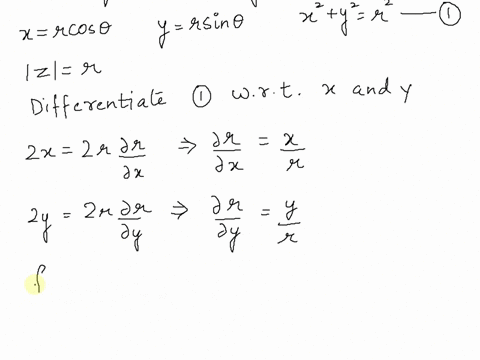 x = r cosθ y = r sinθ x² + y² = r² — ①
|z| = r
Differentiate ① w.r.t. x and y
2x = 2r ∂r/∂x ⇒ ∂r/∂x = x/r
2y = 2r ∂r/∂y ⇒ ∂r/∂y = y/r